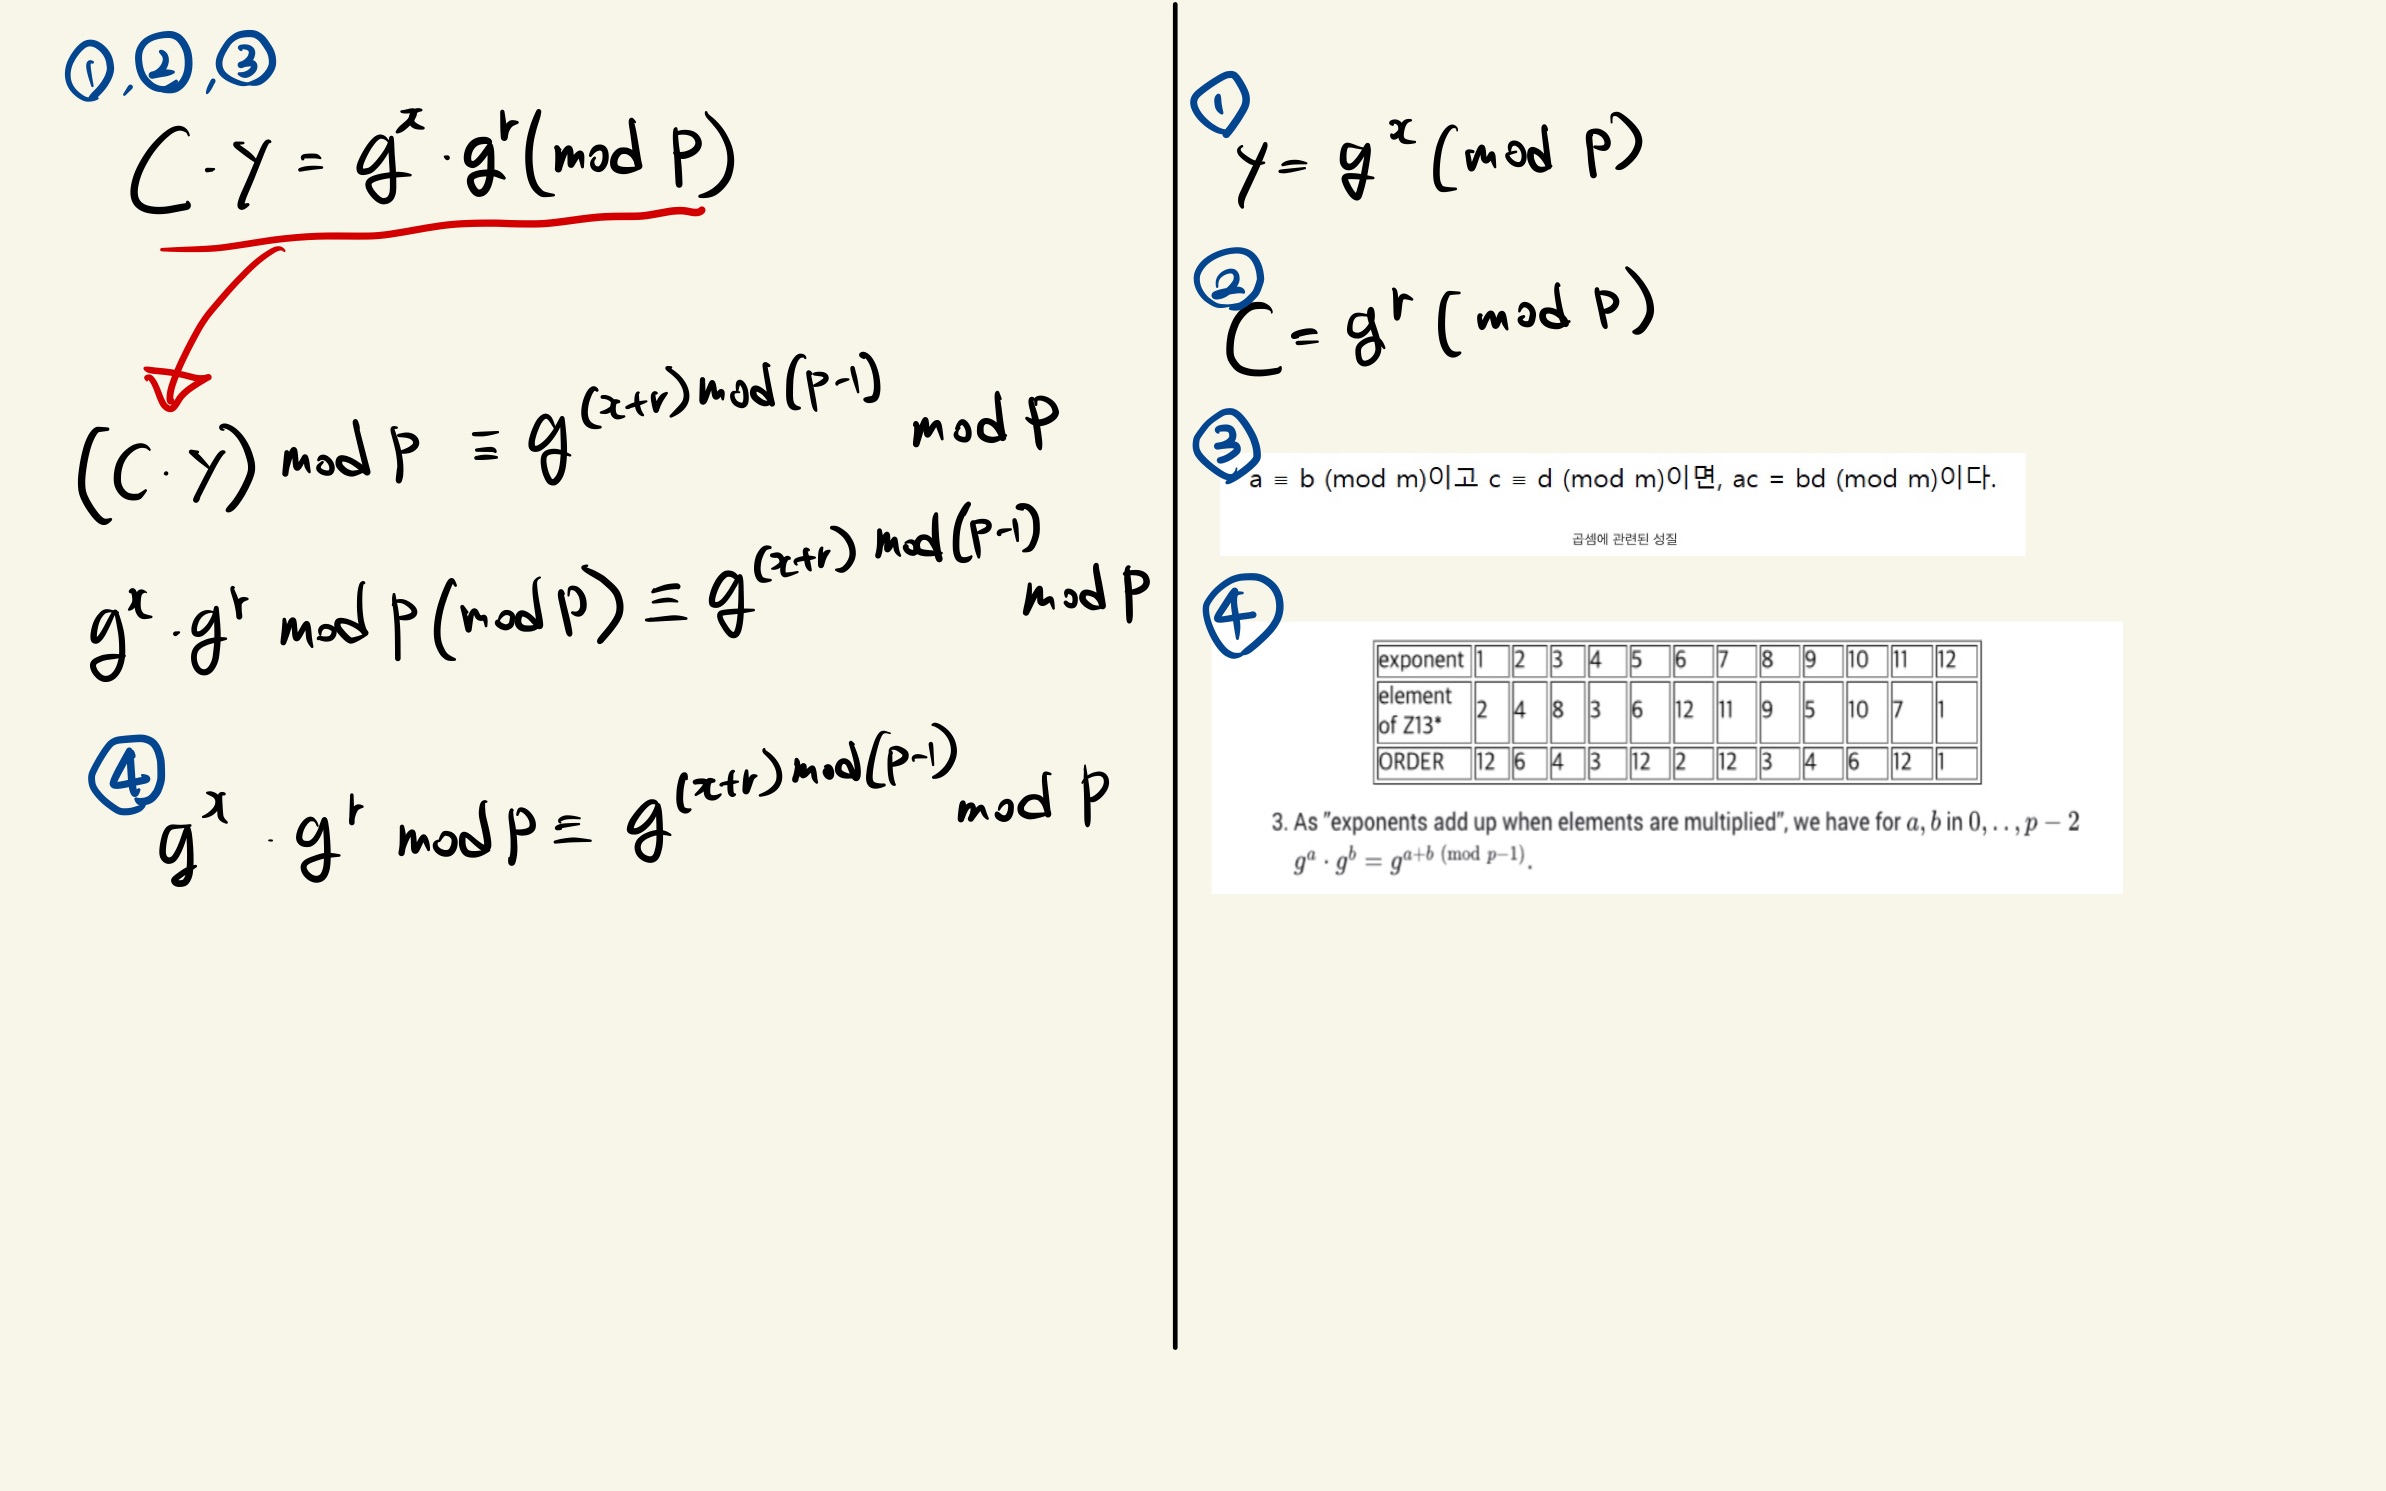 ①, ②, ③
C · y = g^x · g^r (mod p)
(C · y) mod p ≡ g^(x+r) mod (p-1) mod p
g^x · g^r mod p (mod p) ≡ g^(x+r) mod (p-1) mod p
④
g^x · g^r mod p ≡ g^(x+r) mod (p-1) mod p
①
y = g^x (mod p)
②
C = g^r (mod p)
③
a ≡ b (mod m)이고 c ≡ d (mod m)이면, ac = bd (mod m)이다.
곱셈에 관련된 성질
④
exponent 1 2 3 4 5 6 7 8 9 10 11 12
element of Z13* 2 4 8 3 6 12 11 9 5 10 7 1
ORDER 12 6 4 3 12 2 12 3 4 6 12 1
3. As "exponents add up when elements are multiplied", we have for a, b in 0, . . , p − 2
g^a · g^b = g^a+b (mod p−1).